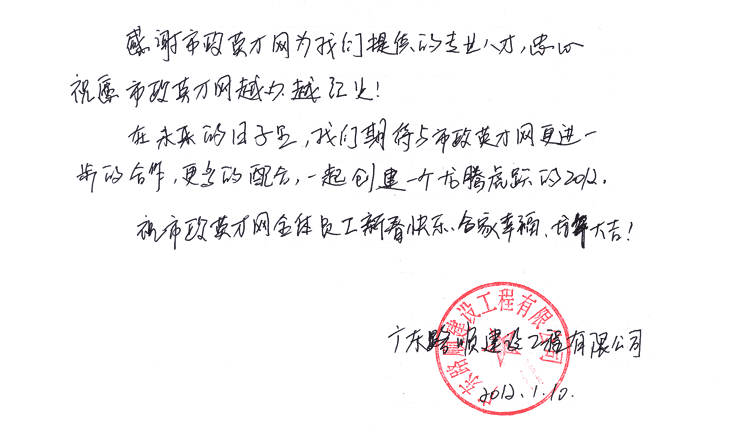 感谢市政英才网为我们提供的专业人才,忠心
祝愿市政英才网越办越红火!
在未来的日子里,我们期待与市政英才网更进一
步的合作,更多的配合,一起创建一个龙腾虎跃的2012.
祝市政英才网全体员工新春快乐、合家幸福、龙年大吉!
广东路顺建设工程有限公司
广东路顺建设工程有限公司
2012.1.10.